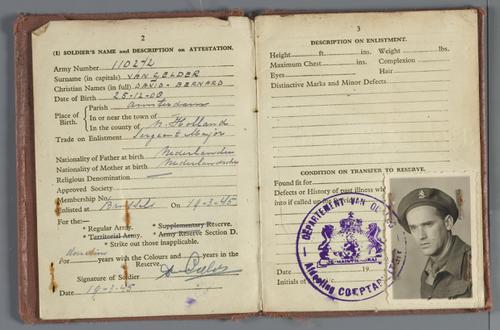 2
(I) SOLDIER'S NAME and DESCRIPTION on ATTESTATION.
Army Number 110272
Surname (in capitals) VAN GELDER
Christian Names (in full) DAVID - BERNARD
Date of Birth 25-12-00
Place of Birth.
Parish Amsterdam
In or near the town of
In the county of N. Holland
Trade on Enlistment Sergeant Major
Nationality of Father at birth Nederlander
Nationality of Mother at birth Nederlandse
Religious Denomination
Approved Society
Membership No.
Enlisted at Brussels On 19-3-45
For the:—
* Regular Army. * Supplementary Reserve.
* Territorial Army. * Army Reserve Section D.
* Strike out those inapplicable.
For years with the Colours and years in the Reserve.
Signature of Soldier
Date 19-3-45
3
DESCRIPTION ON ENLISTMENT.
Height ft. ins. Weight lbs.
Maximum Chest ins. Complexion
Eyes Hair
Distinctive Marks and Minor Defects
CONDITION ON TRANSFER TO RESERVE.
Found fit for
Defects or History of past illness
into if called up
Date 19
Initials of
DEPARTEMENT VAN
Afdeeling COMPTAB